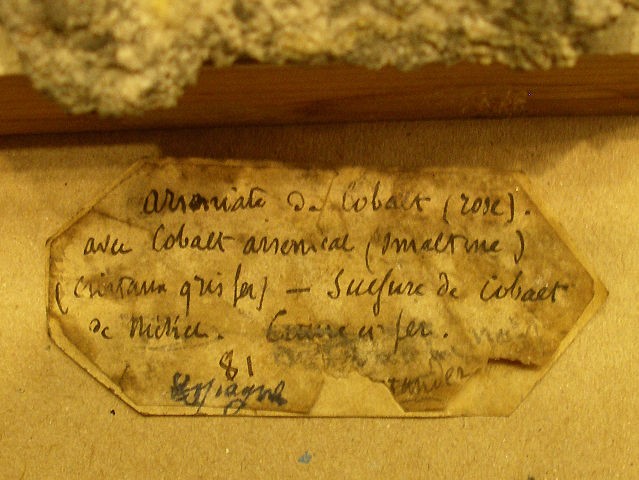 arseniate de Cobalt (rose).
avec Cobalt arsenical (smaltine)
(cristaux gris fer) — Sulfure de Cobalt
de Nickel. Cuivre et fer.
81
Espagne